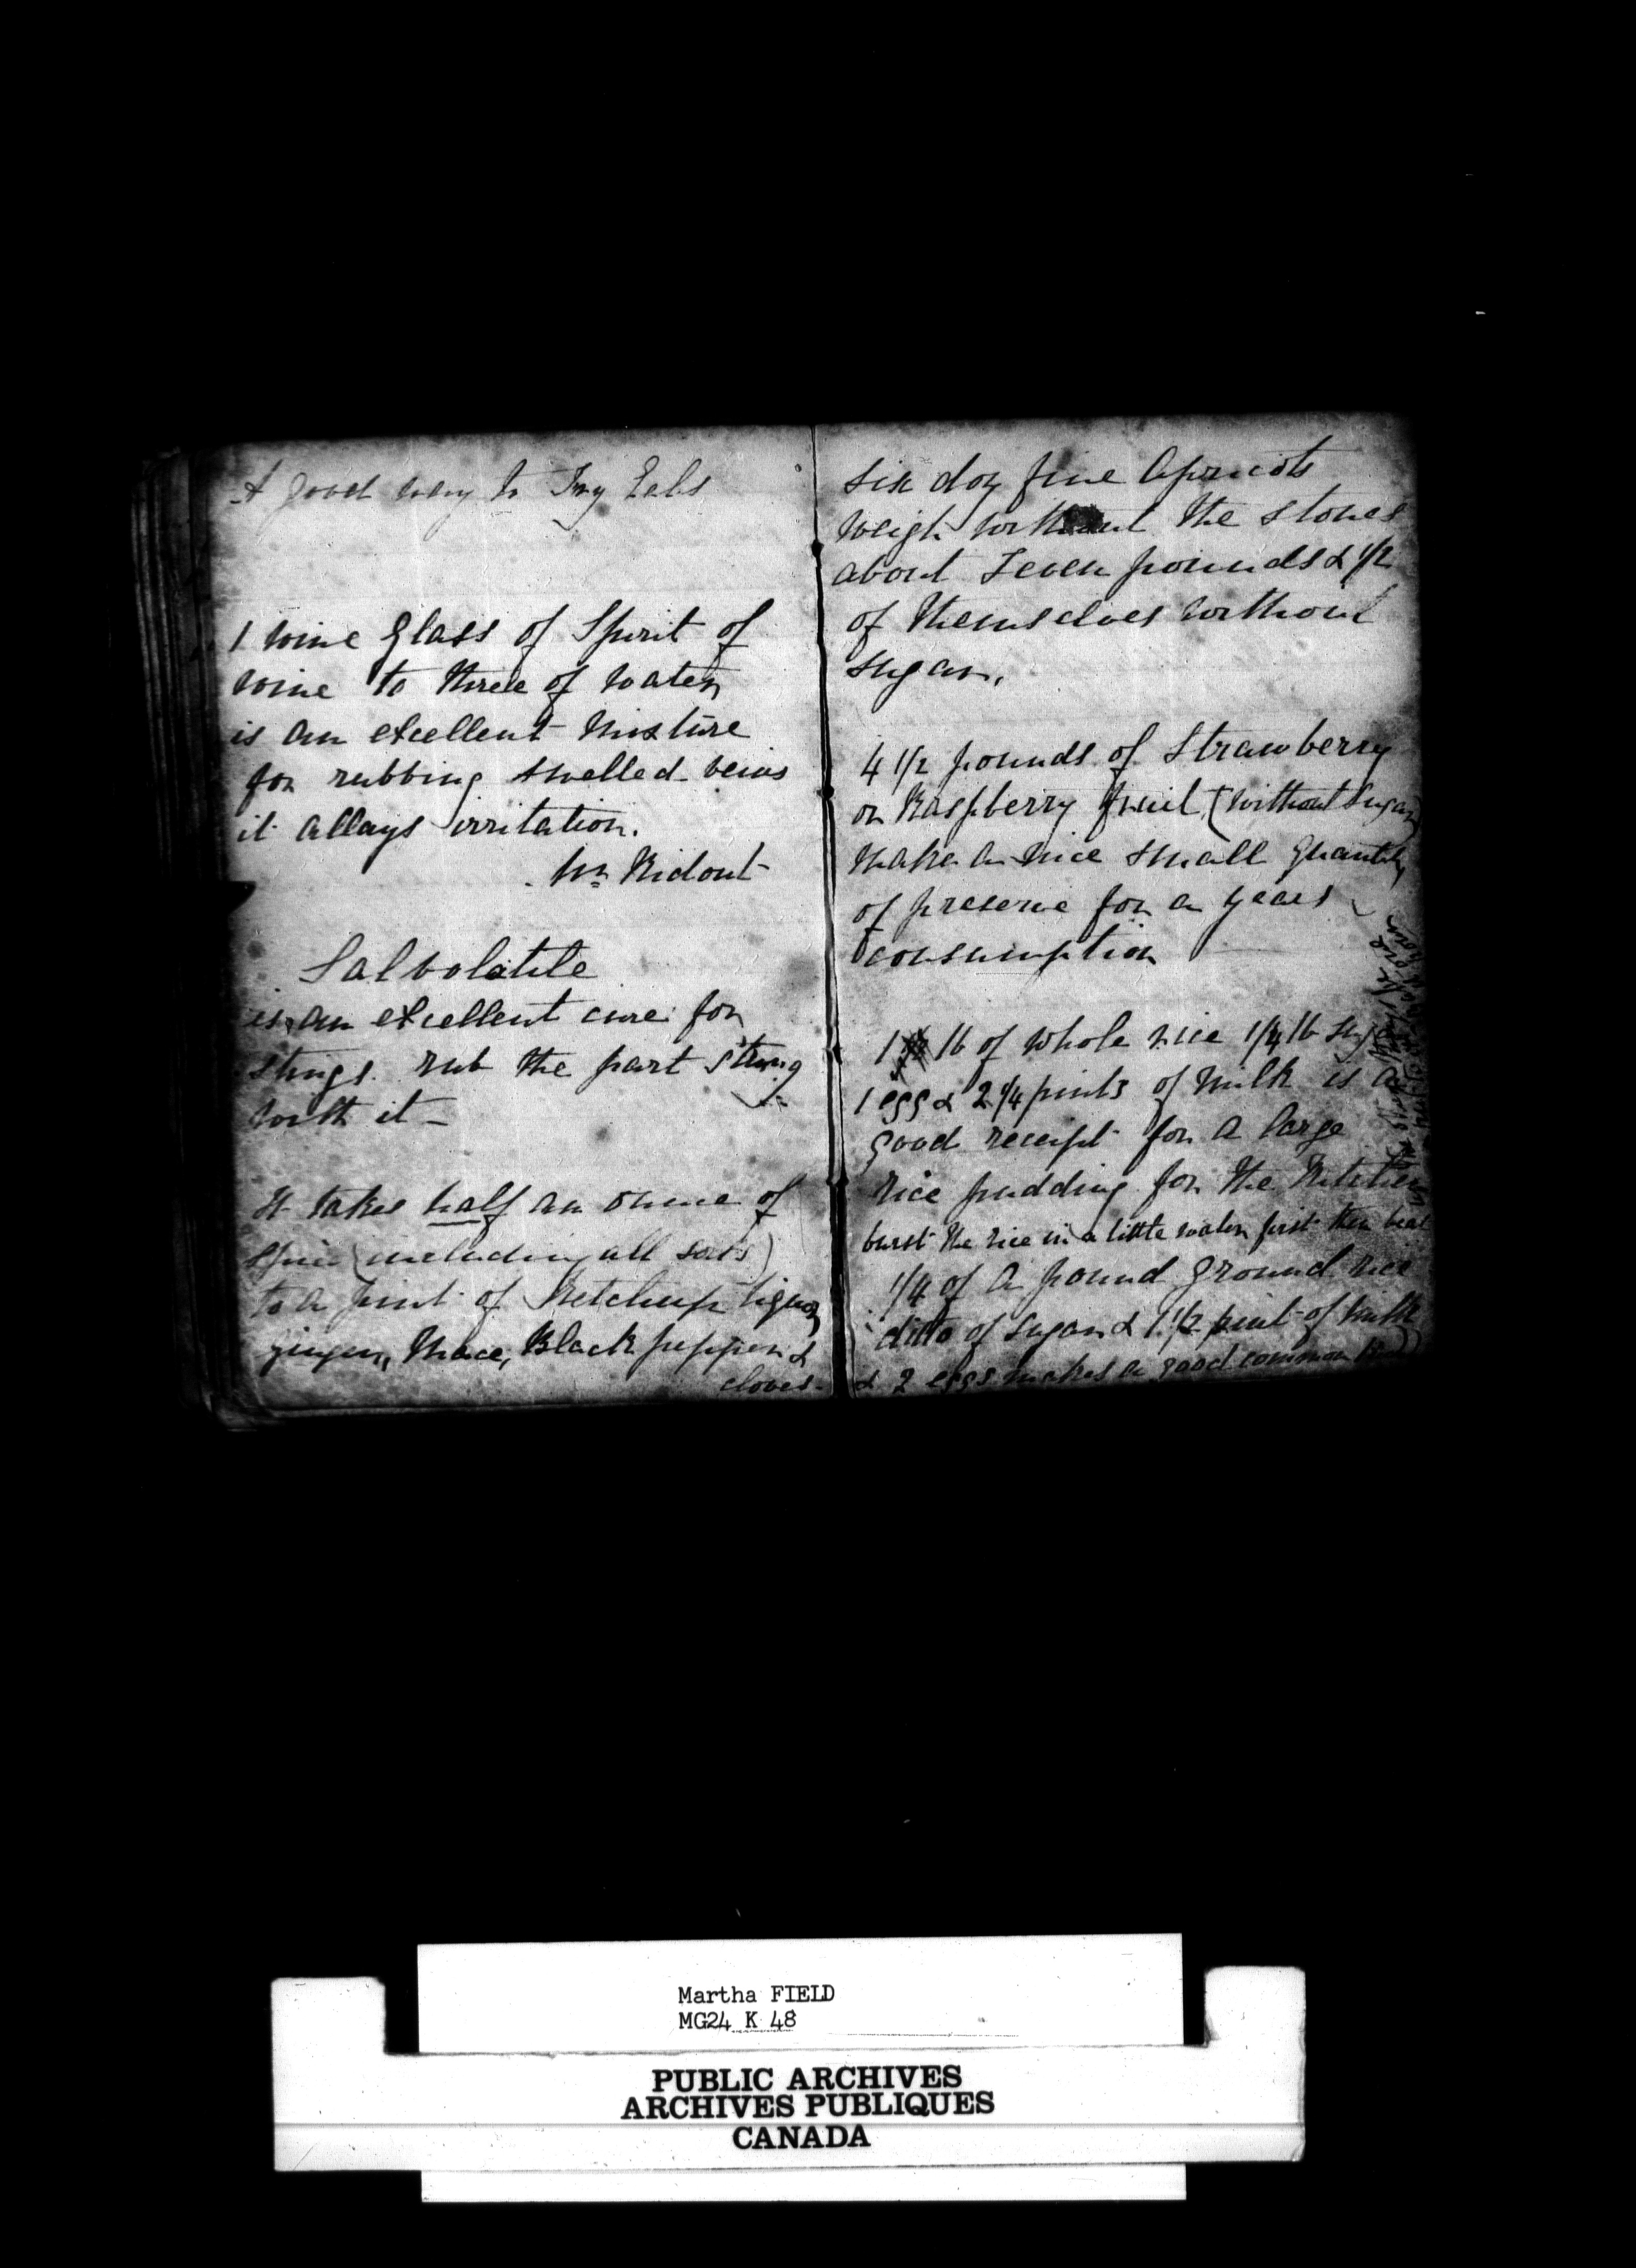 A good way to Fry Eels
1 wine Glass of Spirit of
wine to three of water
is an excellent mixture
for rubbing swelled veins
it allays irritation.
Mr Ridout
Salvolatile
is an excellent cure for
stings. rub the part stung
with it -
It takes half an ounce of
spice (including all sorts)
to a pint of Ketchup liquor
ginger, Mace, Black pepper &
cloves -
six doz fine Apricots
weigh without the stones
about Seven pounds & 1/2
of themselves without
sugar.
4 1/2 pounds of Strawberry
or Raspberry fruit (without Sugar)
make a nice small quantity
of preserve for a years
consumption
1 lb of whole rice 1/4 lb
1 egg & 2 1/4 pints of milk is a
good receipt for a large
rice pudding for the Kitchen
burst the rice in a little water first then beat
1/4 of a pound ground rice
ditto of sugar & 1 1/2 pint of milk
& 2 eggs makes a good common
Martha FIELD
MG24 K 48
PUBLIC ARCHIVES
ARCHIVES PUBLIQUES
CANADA